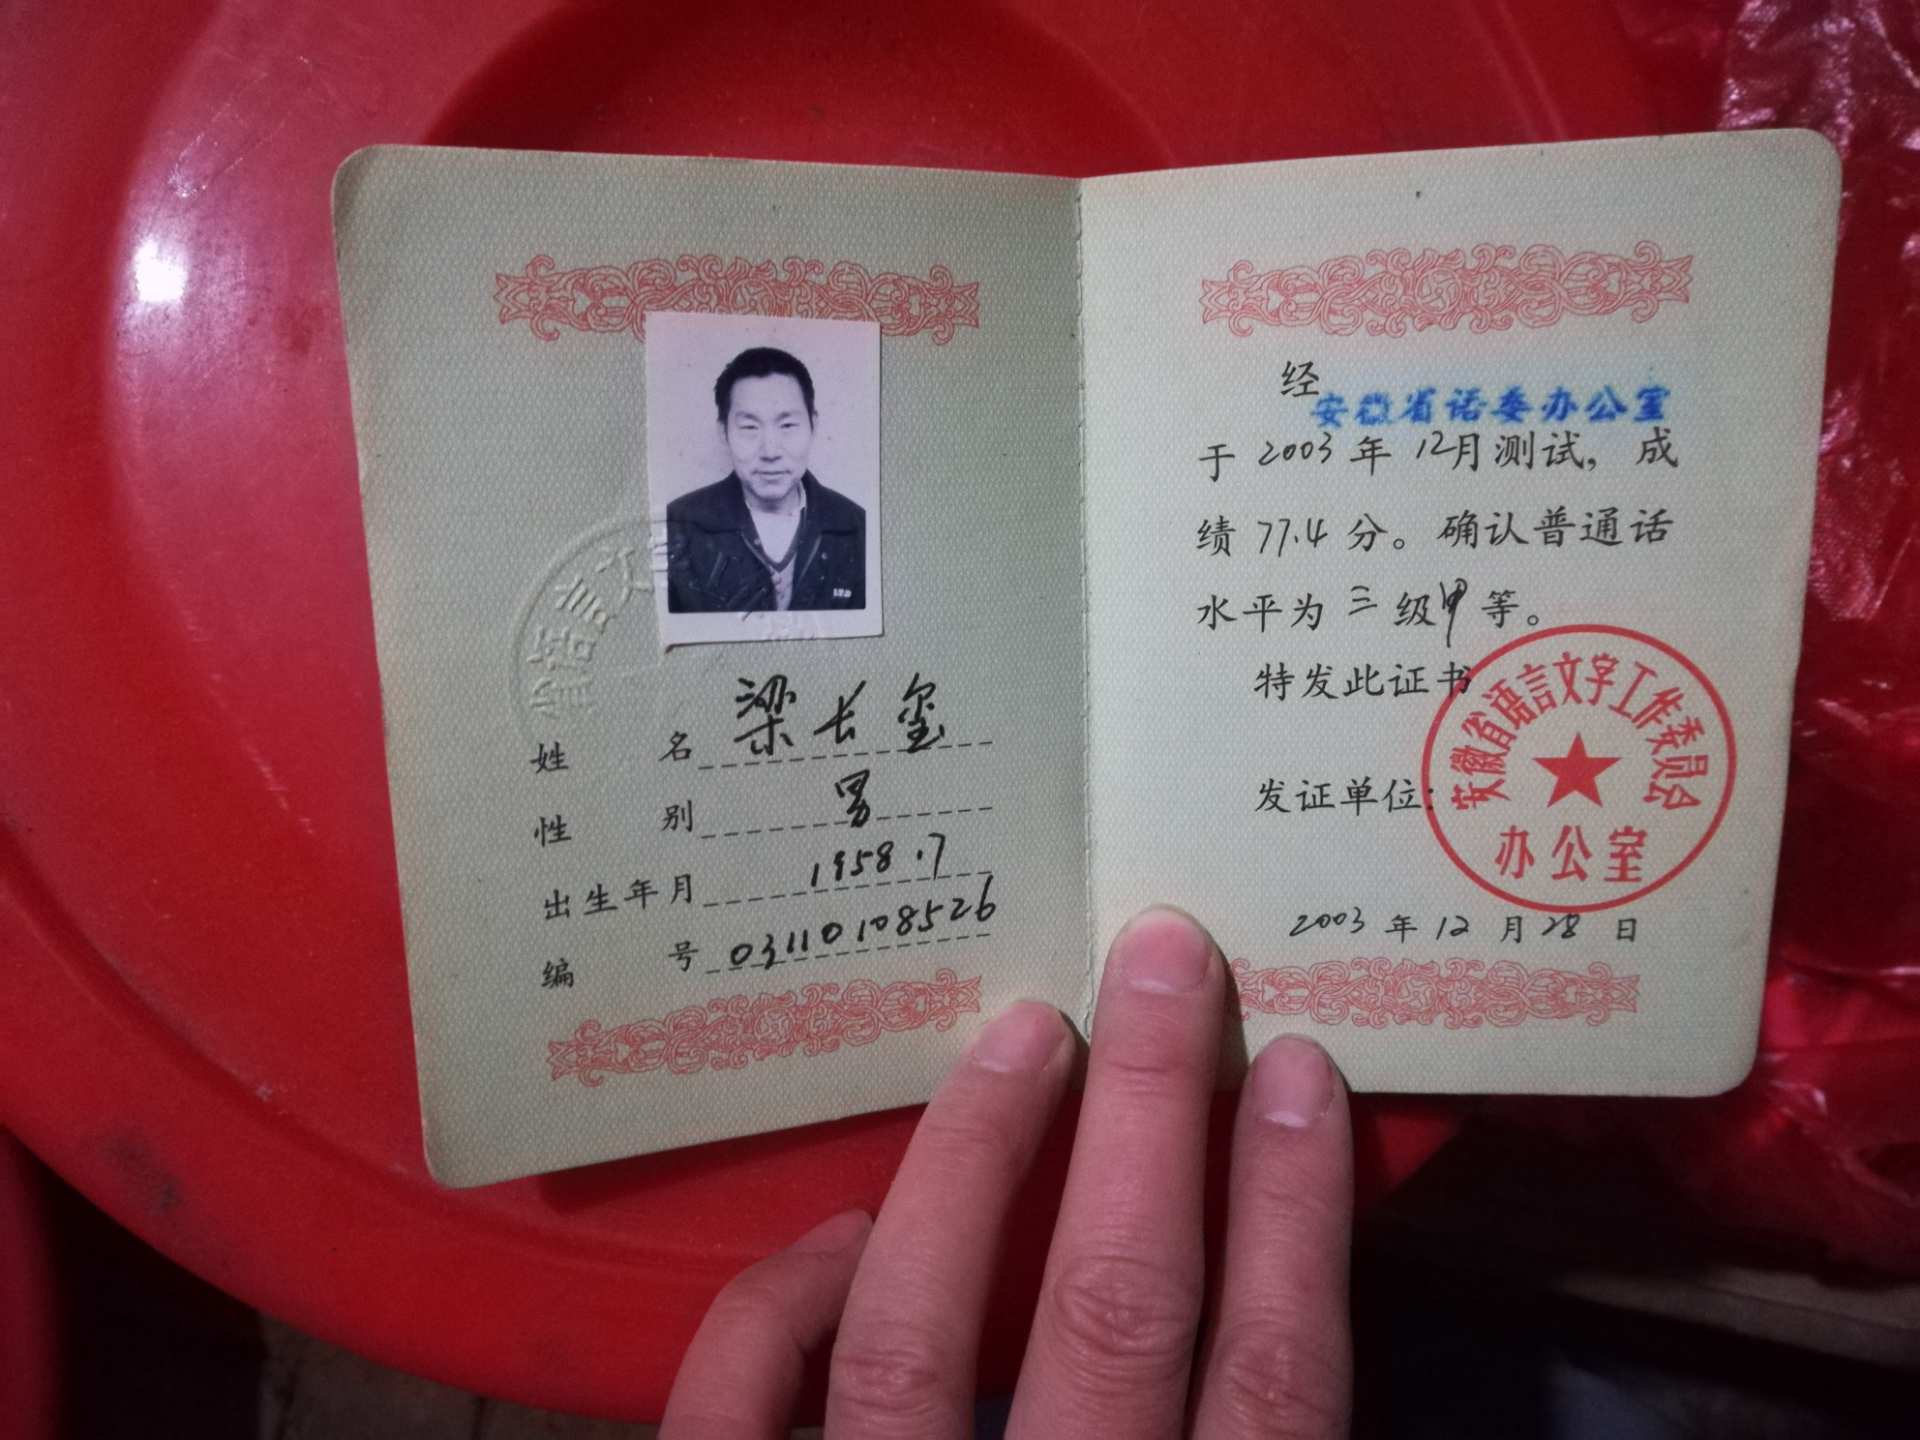 省语言文字
姓名 梁长玺
性别 男
出生年月 1958.7
编号 03110108526
经安徽省语委办公室
于 2003 年 12月测试，成
绩 77.4 分。确认普通话
水平为 三 级甲等。
特发此证书
发证单位：
安徽省语言文字工作委员会
办公室
2003 年 12 月 28 日